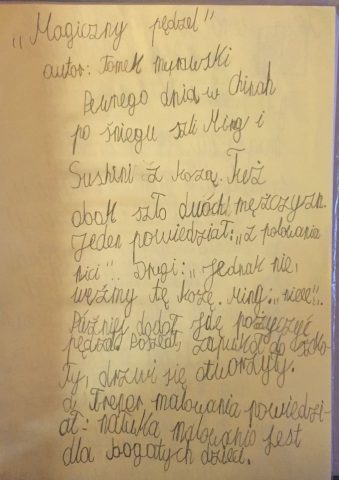 „Magiczny pędzel"
autor: Tomek Myrowski
Pewnego dnia w Chinah
po śniegu szli Ming i
Sushini z kozą. Tuż
obok szło dwóch mężczyzn.
Jeden powiedział: „Z polowania
nici". Drugi: „Jednak nie,
weźmy tę kozę. Ming: „nieee!".
Później dodał idę pożyczyć
pędzel. Poszedł, zapukał do szko-
ły, drzwi się otworzyły.
a Trener malowania powiedzi-
ał: nauka malowania jest
dla bogatych dzieci.